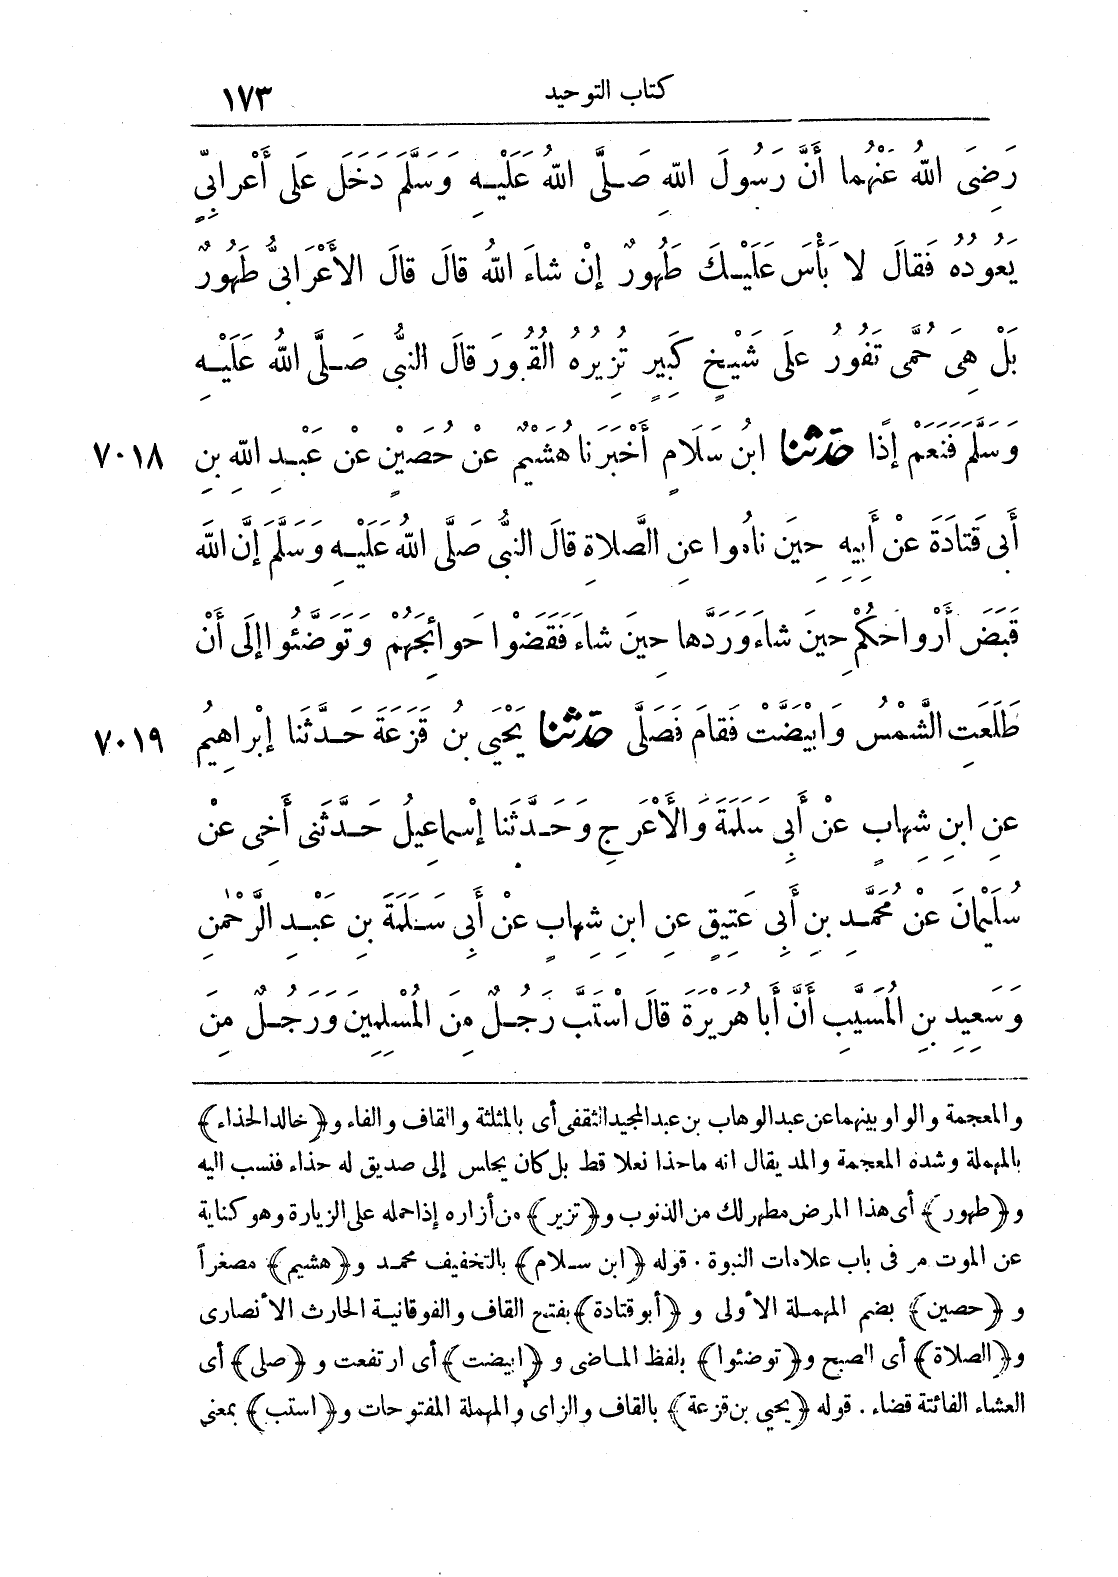 ١٧٣ كتاب التوحيد
رَضِيَ اللهُ عَنْهُما أَنَّ رَسُولَ اللهِ صَلَّى اللهُ عَلَيْهِ وَسَلَّمَ دَخَلَ عَلَى أَعْرابِيٍّ
يَعُودُهُ فَقالَ لا بَأْسَ عَلَيْكَ طَهُورٌ إِنْ شاءَ اللهُ قالَ قالَ الأَعْرابِىُّ طَهُورٌ
بَلْ هِىَ حُمَّى تَفُورُ عَلَى شَيْخٍ كَبِيرٍ تُزِيرُهُ الْقُبُورَ قالَ النَّبِىُّ صَلَّى اللهُ عَلَيْهِ
٧٠١٨ وَسَلَّمَ فَنَعَمْ إِذًا حَدَّثَنَا ابْنُ سَلَامٍ أَخْبَرَنا هُشَيْمٌ عَنْ حُصَيْنٍ عَنْ عَبْدِ اللهِ بنِ
أَبى قَتَادَةَ عَنْ أَبِيهِ حِينَ نامُوا عَنِ الصَّلاةِ قالَ النَّبِىُّ صَلَّى اللهُ عَلَيْهِ وَسَلَّمَ إِنَّ اللهَ
قَبَضَ أَرْواحَكُمْ حِينَ شاءَ وَرَدَّها حِينَ شاءَ فَقَضَوْا حَوائِجَهُمْ وَتَوَضَّئُوا إِلَى أَنْ
٧٠١٩ طَلَعَتِ الشَّمْسُ وَابْيَضَّتْ فَقامَ فَصَلَّى حَدَّثَنَا يَحْيَى بنُ قَزَعَةَ حَدَّثَنا إِبْراهِيمُ
عَنِ ابنِ شِهابٍ عَنْ أَبِى سَلَمَةَ وَالأَعْرَجِ وَحَدَّثَنا إِسْماعِيلُ حَدَّثَنى أَخِى عَنْ
سُلَيْمانَ عَنْ مُحَمَّدِ بنِ أَبِى عَتِيقٍ عَنِ ابنِ شِهابٍ عَنْ أَبِى سَلَمَةَ بنِ عَبْدِ الرَّحْمٰنِ
وَسَعِيدِ بنِ الْمُسَيَّبِ أَنَّ أَبا هُرَيْرَةَ قالَ اسْتَبَّ رَجُلٌ مِنَ الْمُسْلِمِينَ وَرَجُلٌ مِنَ
والمعجمة والواو بينهما عن عبد الوهاب بن عبد المجيد الثقفى أى بالمثلثة والقاف والفاء و﴿خالد الحذاء﴾
بالمهملة وشدة المعجمة والمد يقال انه ما حذا نعلا قط بل كان يجلس إلى صديق له حذاء فنسب اليه
و﴿طهور﴾ أى هذا المرض مطهر لك من الذنوب و﴿تزير﴾ من أزاره إذا حمله على الزيارة وهو كناية
عن الموت مر فى باب علامات النبوة . قوله ﴿ابن سلام﴾ بالتخفيف محمد و﴿هشيم﴾ مصغراً
و ﴿حصين﴾ بضم المهملة الأولى و ﴿أبو قتادة﴾ بفتح القاف والفوقانية الحارث الأنصارى
و﴿الصلاة﴾ أى الصبح و﴿توضئوا﴾ بلفظ الماضى و﴿ابيضت﴾ أى ارتفعت و﴿صلى﴾ أى
العشاء الفائتة قضاء . قوله ﴿يحيى بن قزعة﴾ بالقاف والزاى والمهملة المفتوحات و﴿استب﴾ بمعنى